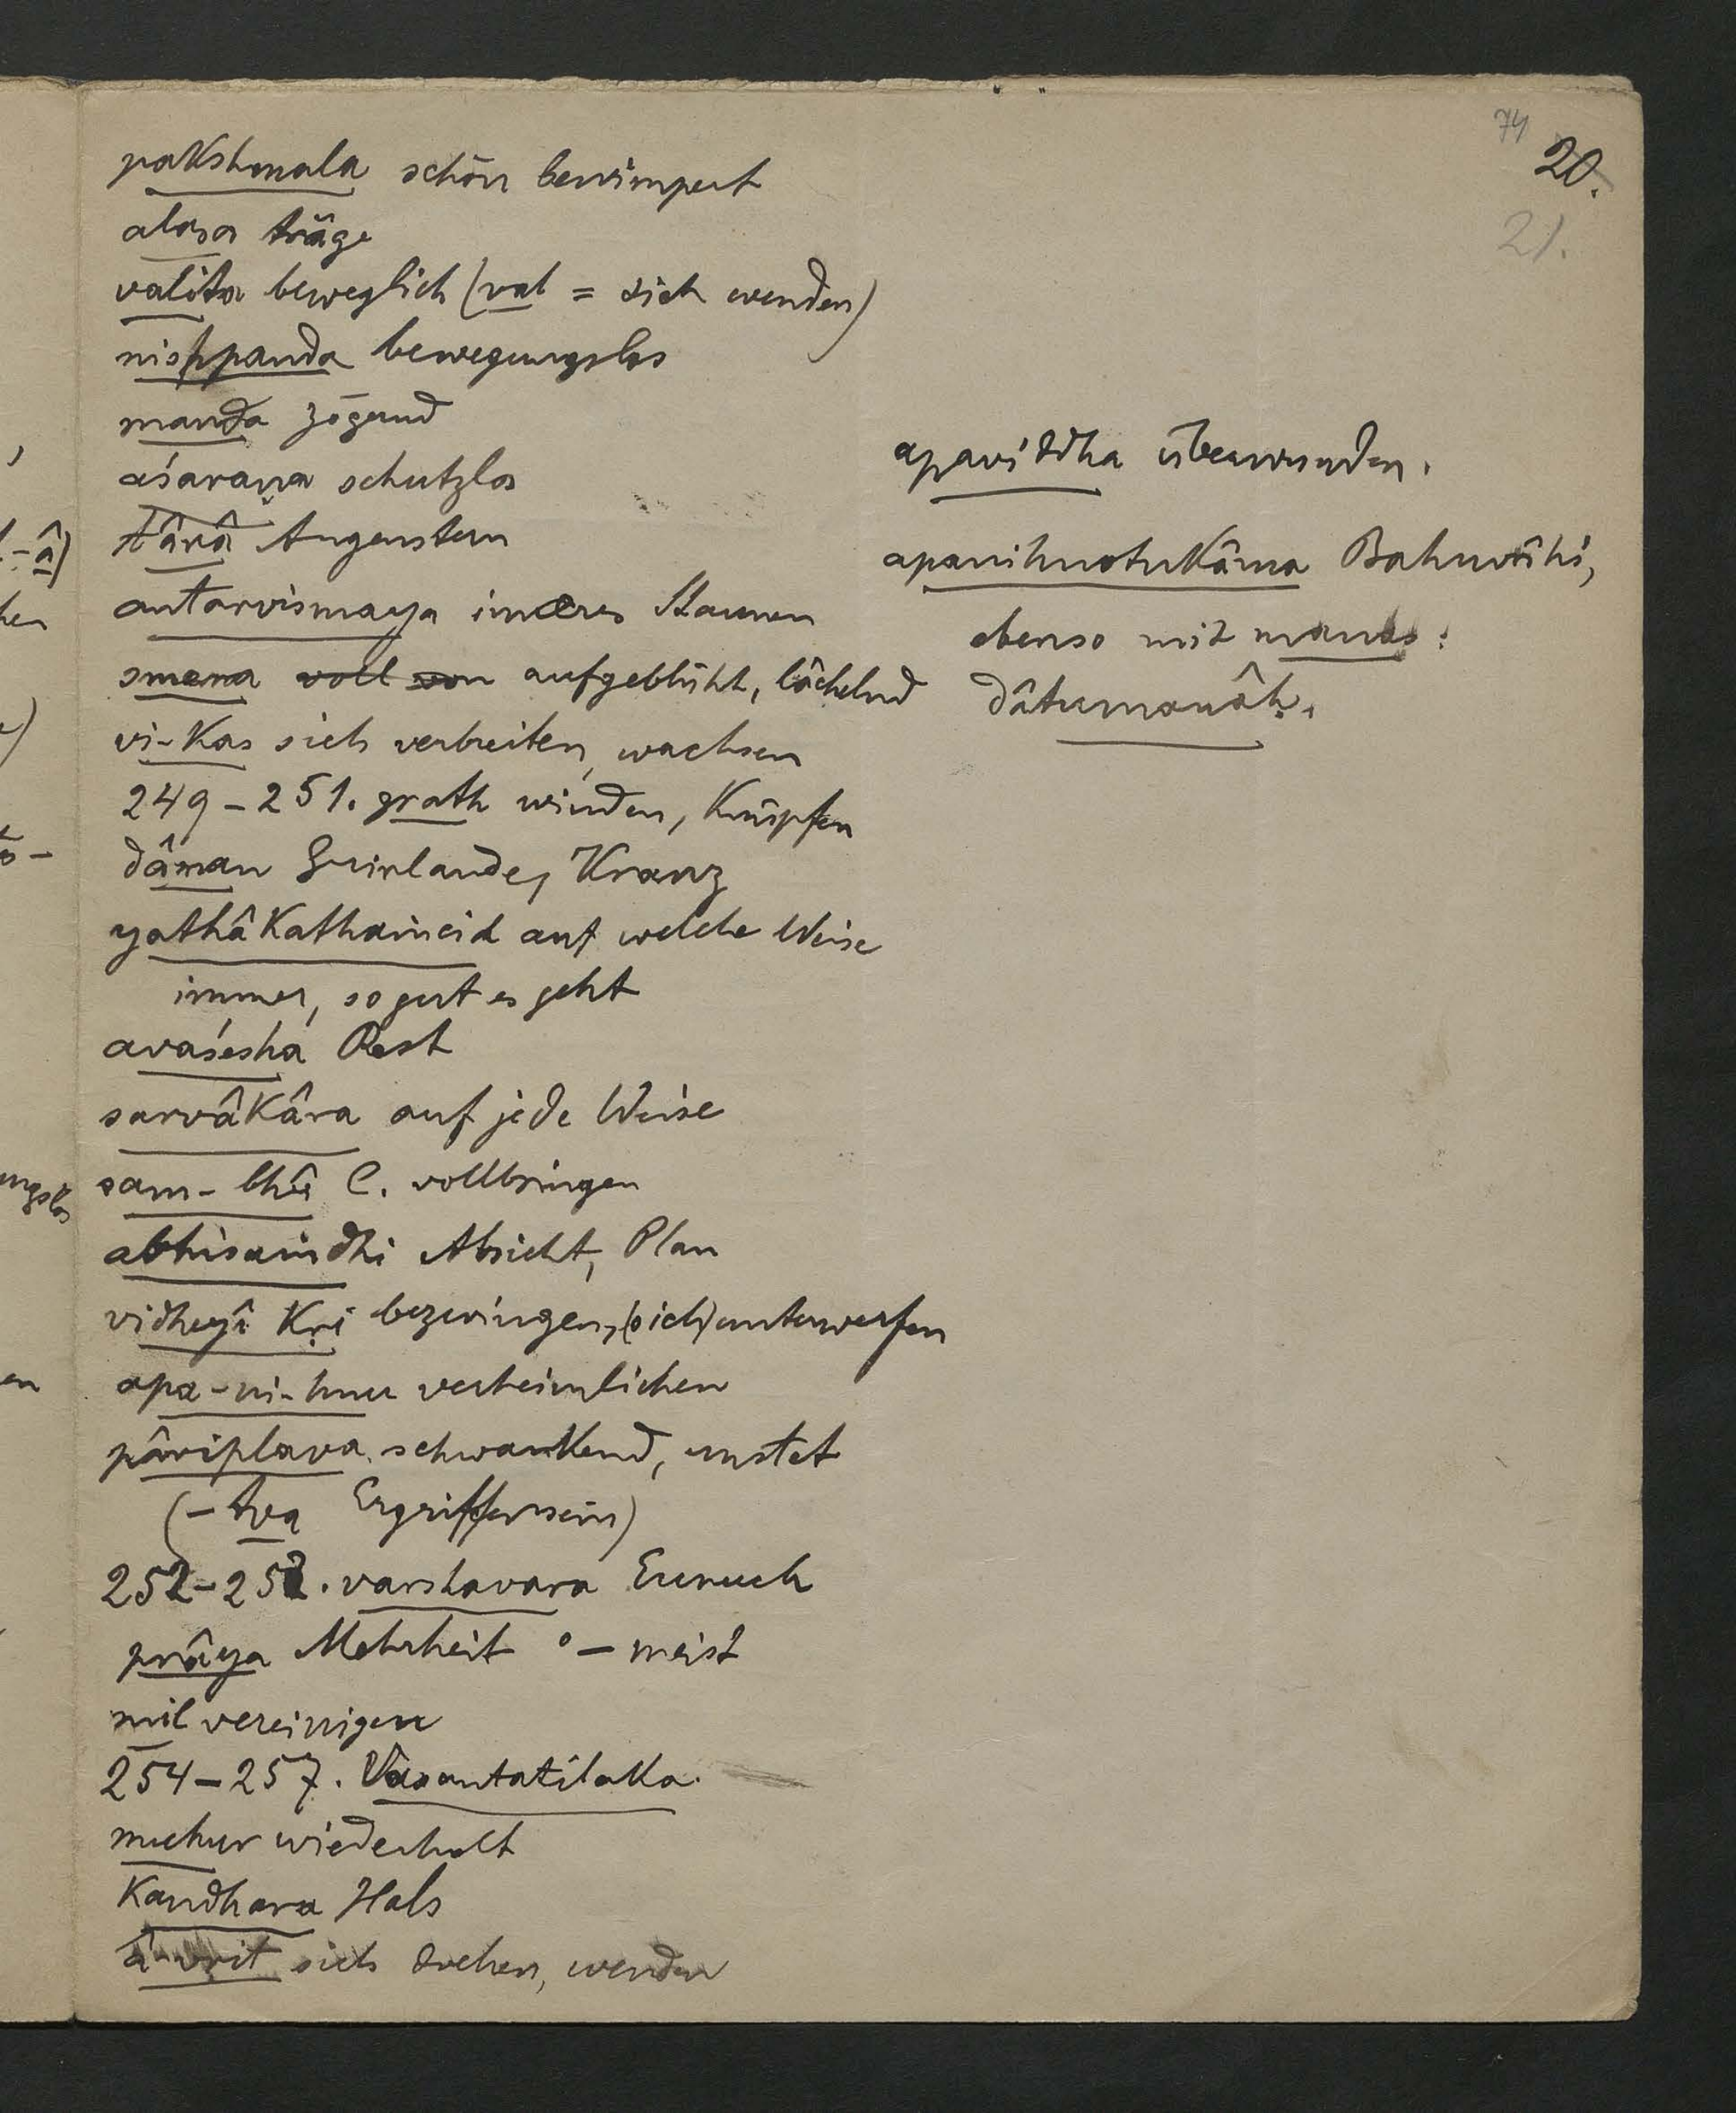 74
20.
21.
pakshmala schön bewimpert
alasa träge
valita beweglich (val = sich wenden)
nishpanda bewegungslos
manda zögernd
aśaraṇa schutzlos
târâ Augenstern
antarvismaya inneres Staunen
smera voll von aufgeblüht, lächelnd
vi-kas sich verbreiten, wachsen
249-251. grath winden, knüpfen
dâman Guirlande, Kranz
yathâkathaṁcid auf welche Weise
immer, so gut es geht
avaśesha Rest
sarvâkâra auf jede Weise
sam-bhû C. vollbringen
abhisaṁdhi Absicht, Plan
vidheyî kṛi bezwingen, (sich) unterwerfen
apa-ni-hnu verheimlichen
pâriplava schwankend, unstet
(-tva Ergriffensein)
252-253. varshavara Eunuch
prâya Mehrheit °- meist
mil vereinigen
254-257. Vasantatilaka.
muhur wiederholt
kandhara Hals
â-vṛit sich drehen, wenden
apaviddha überwunden.
apanihnotukâma Bahuvrîhi,
ebenso mit manas:
dâtumanâḥ.
â)
hen
ö-
ungslos
en